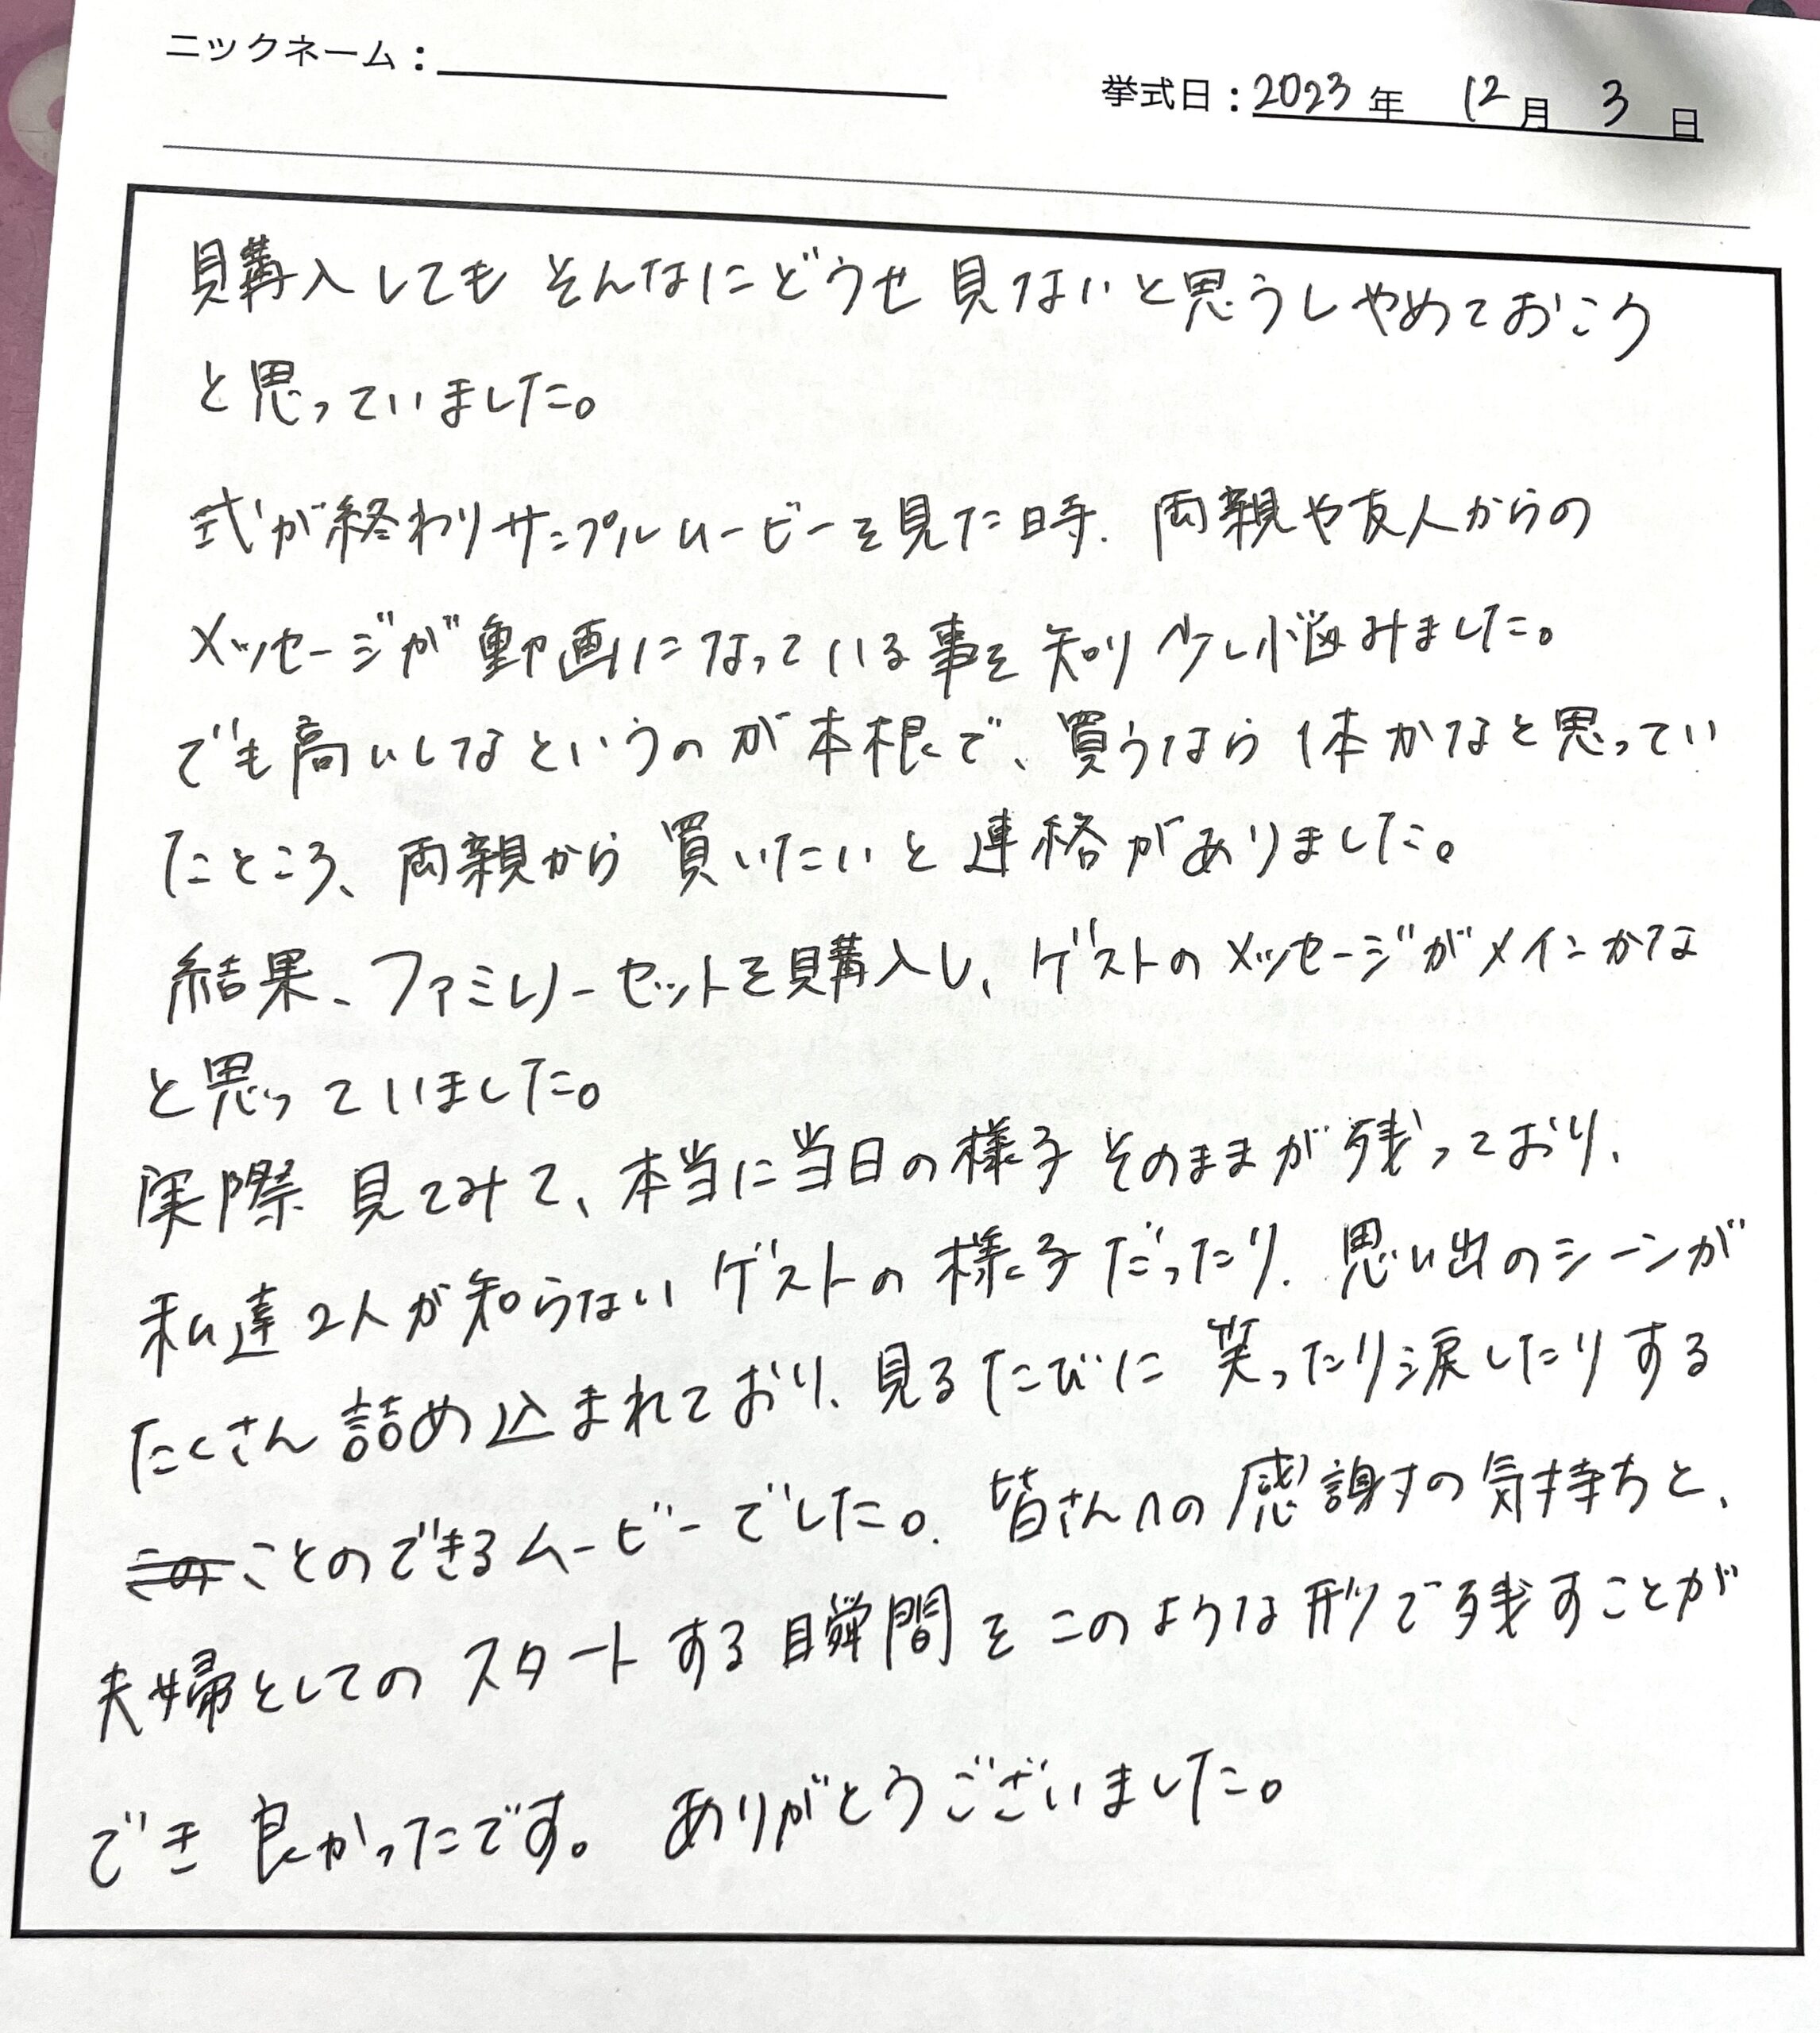 ニックネーム：
挙式日：2023年 12月 3日
購入してもそんなにどうせ見ないと思うしやめておこう
と思っていました。
式が終わりサンプルムービーを見た時、両親や友人からの
メッセージが動画になっている事を知り少し悩みました。
でも高いしなというのが本根で、買うなら1本かなと思ってい
たところ、両親から買いたいと連絡がありました。
結果、ファミリーセットを購入し、ゲストのメッセージがメインかな
と思っていました。
実際見てみて、本当に当日の様子そのままが残っており、
私達2人が知らないゲストの様子だったり、思い出のシーンが
たくさん詰め込まれており、見るたびに笑ったり涙したりする
ことのできるムービーでした。皆さんへの感謝の気持ちと、
夫婦としてのスタートする瞬間をこのような形で残すことが
でき良かったです。ありがとうございました。